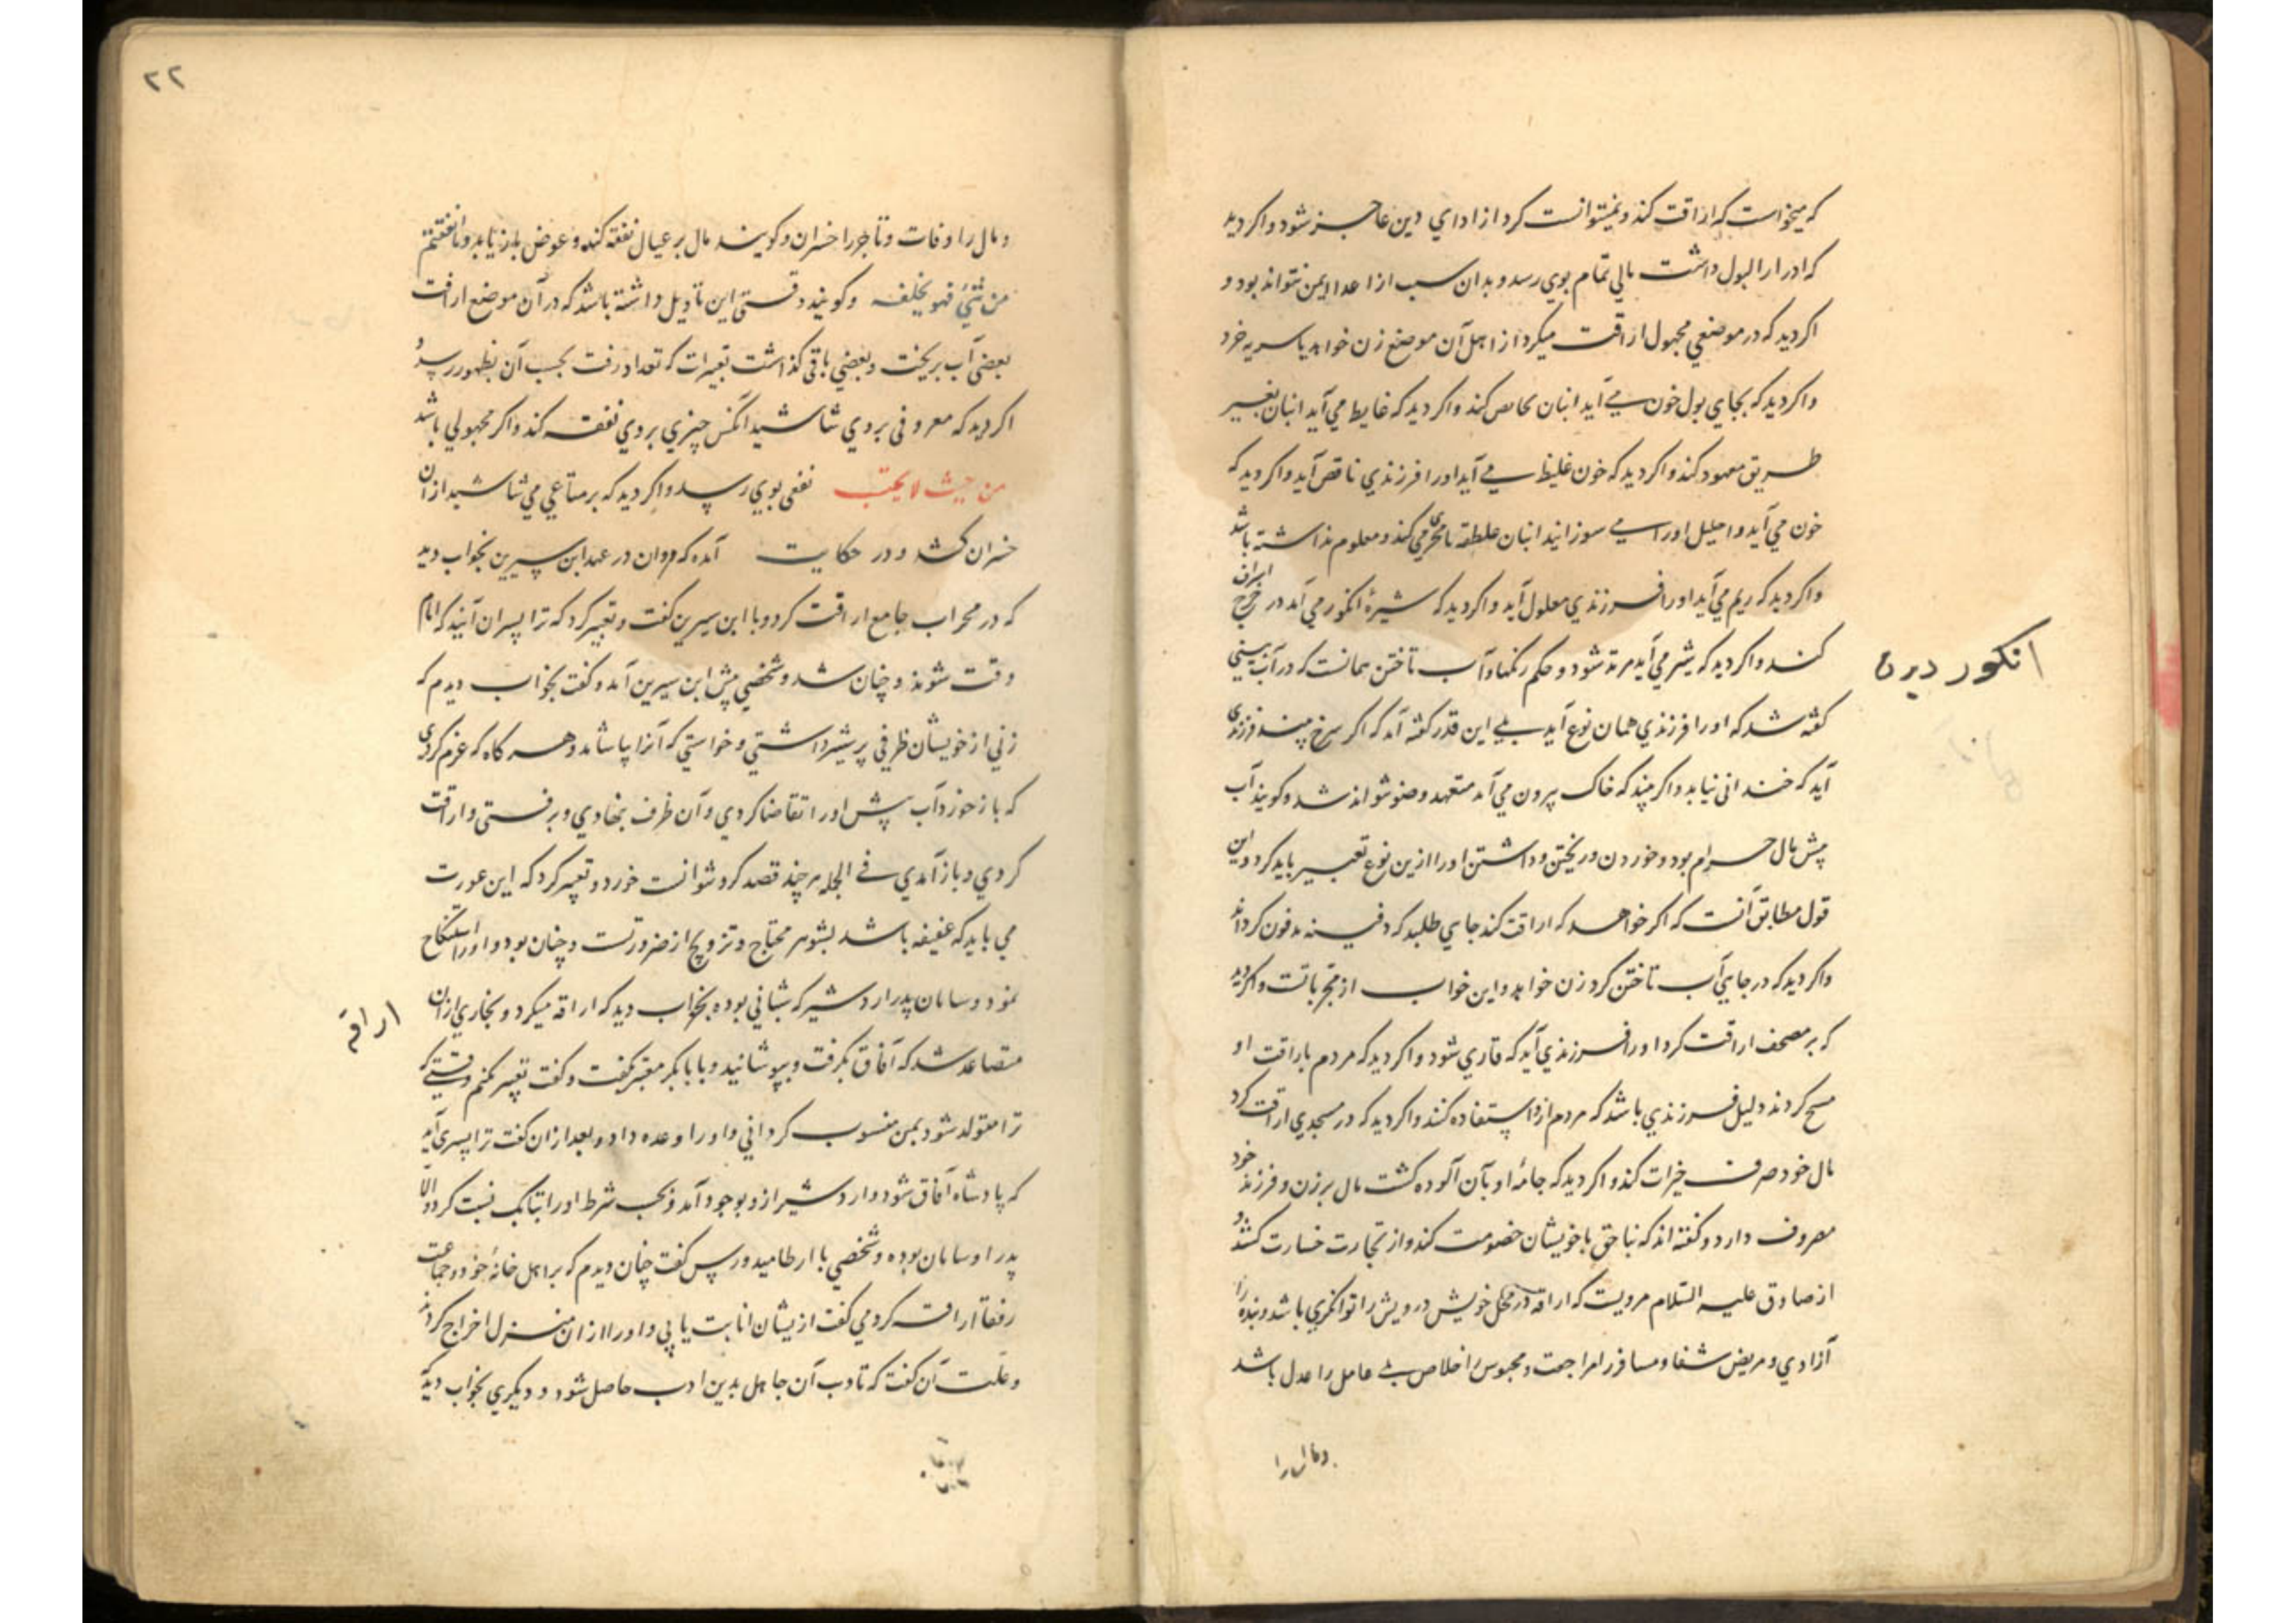 که میخواست که اراقت کند و نمیتوانست کرد از ادای دین عاجز شود و اکر دید
که ادرار البول داشت مالی تمام بوی رسد و بدان سبب از اعدا ایمن نتواند بود و
اکر دید که در موضعی مجهول اراقت میکرد از اهل آن موضع زن خواهد یا سریه خرد
واکر دید که بجای بول خون می آید اتیان حایض کند واکر دید که غایط می آید اتیان بغیر
طریق معهود کند واکر دید که خون غلیظ می آید او را فرزندی ناقص آید واکر دید که
خون می آید و احلیل او را می سوزانید اتیان مطلقه یا محرمی کند و معلوم نداشته باشد
واکر دید که ریم می آید او را فرزندی معلول آید واکر دید که شیرهٔ انکور می آید در خرج اسراف
کند واکر دید که شیر می آید مرتد شود و حکم رنکها و آب تاختن همانست که در آب بینی
انکور دیدن
کفته شد که او را فرزندی همان نوع آید بلی این قدر کفته آمد که اکر سرخ بیند فرزندی
آید که خندانی نیابد واکر بیند که خاک بیرون می آمد متعهد وضو نتواند شد و کویند آب
پیش مال حرام بود و خوردن و ریختن و داشتن او را ازین نوع تعبیر باید کرد و این
قول مطابق آنست که اکر خواهد که اراقت کند جای طلبد که دفینه مدفون کرداند
واکر دید که در جایی آب تاختن کرد زن خواهد و این خواب از مجرباتست و اکر دید
که بر مصحف اراقت کرد او را فرزندی آید که قاری شود واکر دید که مردم باراقت او
مسح کردند دلیل فرزندی باشد که مردم ازو استفاده کنند واکر دید که در مسجدی اراقت کرد
مال خود صرف خیرات کند واکر دید که جامهٔ او بآن آلوده کشت مال بر زن و فرزند خود
مصروف دارد و کفته اند که بناحق با خویشان خصومت کند و از تجارت خسارت کشد و
از صادق علیه السلام مرویست که اراقه در محل خویش درویش را توانکری باشد و بنده را
آزادی و مریض شفا و مسافر را مراجعت و محبوس را خلاص بلی عامل را عدل باشد
و مال را
۲۲
و مال را وفات و تاجر را خسران و کویند مال بر عیال نفقه کند و عوض باز یابد و ما انفقتم
من شیء فهو یخلفه و کویند وقتی این تاویل داشته باشد که در آن موضع اراقت
بعضی آب بریخت و بعضی باقی کذاشت تعبیرات که تعداد رفت بحسب آن بظهور رسد و
اکر دید که معروفی بر وی شاشید آنکس چیزی بر وی نفقه کند واکر مجهولی باشد
من حیث لا یحتسب نفعی بوی رسد واکر دید که بر متاعی می شاشید از آن
خسران کشد و در حکایت آمده که مروان در عهد ابن سیرین بخواب دید
که در محراب جامع اراقت کرد و با ابن سیرین کفت و تعبیر کرد که ترا پسران آیند که امام
وقت شوند و چنان شد و شخصی پیش ابن سیرین آمد و کفت بخواب دیدم که
زنی از خویشان ظرفی پر شیر داشتی و خواستی که آنرا بیاشامد و هر کاه که عزم کردی
که باز خورد آب پیش او را تقاضا کردی و آن ظرف بنهادی و برفتی و اراقت
کردی و باز آمدی فی الجمله هر چند قصد کرد نتوانست خورد و تعبیر کرد که این عورت
می باید که عفیفه باشد بشوهر محتاج و تزویج از ضرورتست و چنان بود و او را استنکاح
نمود و ساسان پدر اردشیر که شبانی بوده بخواب دید که اراقه میکرد و بخاری از آن
اراقه
متصاعد شد که آفاق بکرفت و بپوشانید و با بابک معبر بکفت و کفت تعبیر نکنم وقتی که
ترا متولد شود بمن منسوب کردانی و او را وعده داد و بعد از آن کفت ترا پسری آید
که پادشاه آفاق شود و اردشیر ازو بوجود آمد و بحسب شرط او را ببابک نسبت کرد و الا
پدر او ساسان بوده و شخصی با ارطامیدورس کفت چنان دیدم که بر اهل خانهٔ خود و جماعت
رفقا اراقت کردمی کفت ازیشان اثابت یابی و او را از آن منزل اخراج کردند
و علت آن کفت که تادب آن جاهل بدین ادب حاصل شود و دیکری بخواب دید